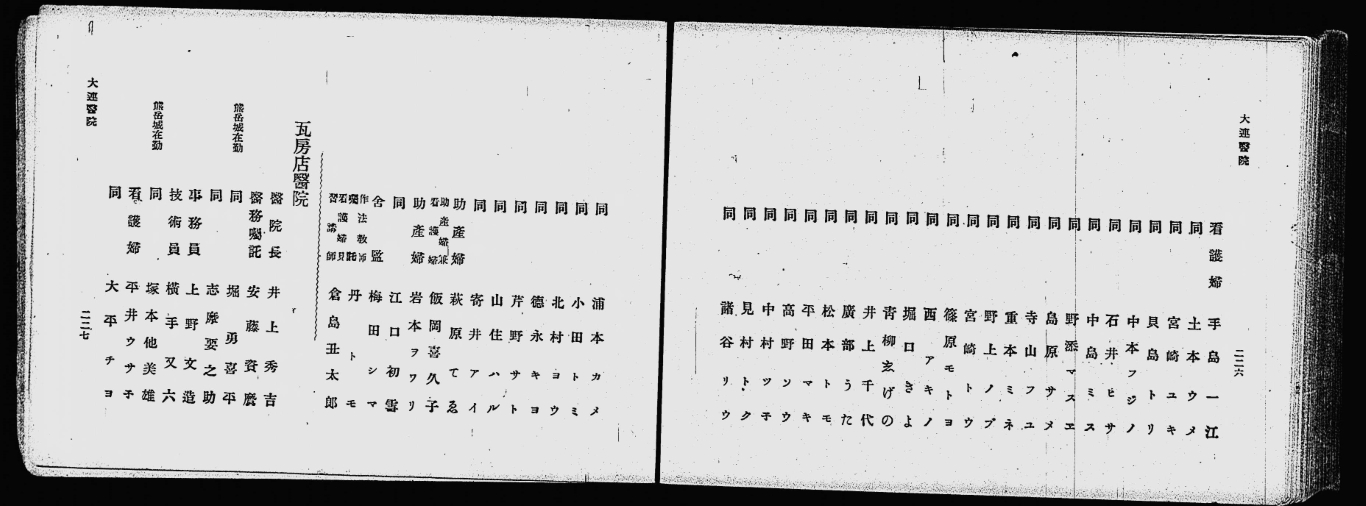 大連醫院
二二六
看護婦 手島一江
同 土本ウメ
同 宮崎ユキ
同 貝島トリ
同 中本フジノ
同 石井ヒサ
同 中島ミス
同 野添マスヱ
同 島原サメ
同 寺山フユ
同 重本ミネ
同 野上ノブ
同 宮崎トウ
同 篠原モトヨ
同 西アキノ
同 堀口きよ
同 青柳玄げの
同 井上千代
同 廣部うた
同 松本トモ
同 平田マキ
同 高野ソウ
同 中村ツチ
同 見村トク
同 諸谷リウ
同 浦本カメ
同 小田トミ
同 北村コウ
同 德永キヨ
同 芹野サト
同 山住ハル
同 寄井アイ
助產婦 萩原てゑ
助產婦兼看護婦 飯岡喜久子
助產婦 岩本ヲワリ
同 江口初雪
舍監 梅田シマ
作法敎師囑託 丹トモ
看護婦見習講師 倉島丑太郎
瓦房店醫院
醫院長 井上秀吉
醫務囑託 安藤資麿
熊岳城在勤 同 堀勇喜平
同 志摩要之助
事務員 上野文造
技術員 橫手又六
熊岳城在勤 同 塚本他美雄
看護婦 平井ウサチ
同 大平チヨ
大連醫院
二二七